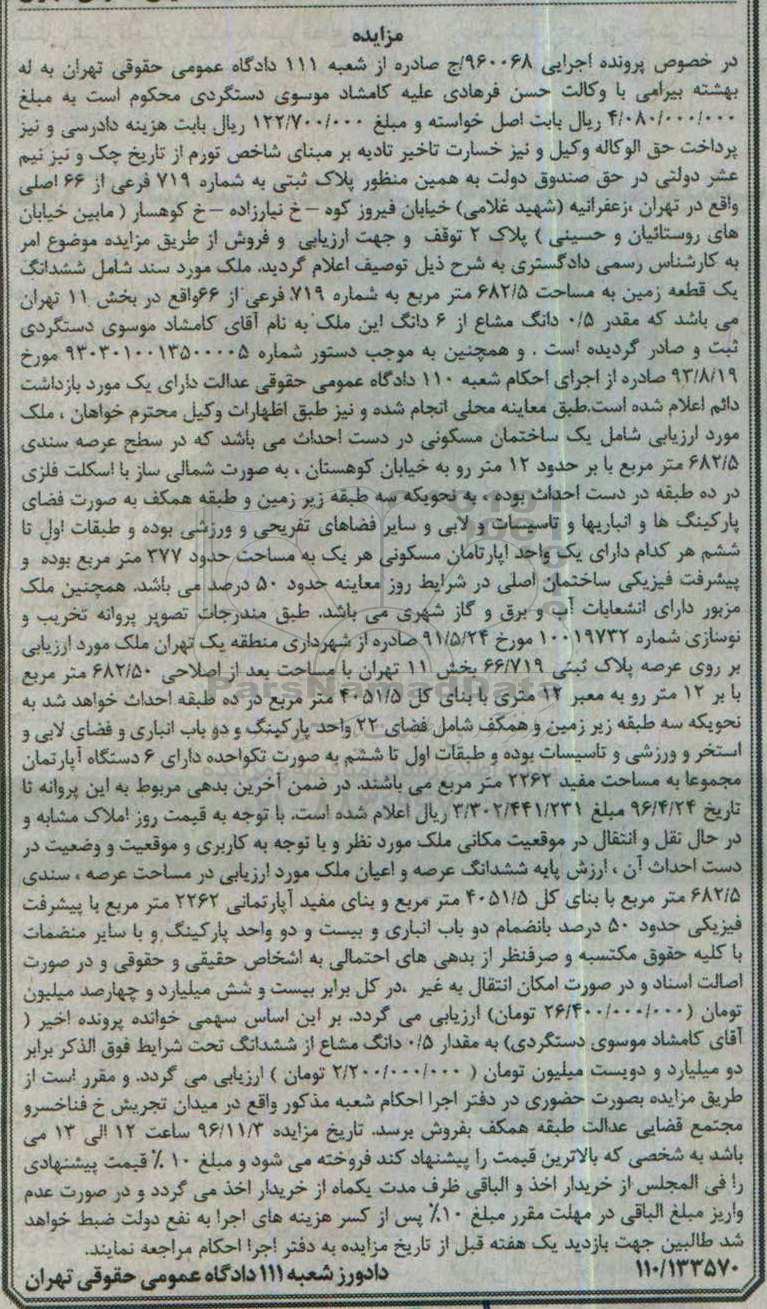 مزایده
در خصوص پرونده اجرایی ۹۶۰۰۶۸/ج صادره از شعبه ۱۱۱ دادگاه عمومی حقوقی تهران به له
بهشته بیرامی با وکالت حسن فرهادی علیه کامشاد موسوی دستگردی محکوم است به مبلغ
۴/۰۸۰/۰۰۰/۰۰۰ ریال بابت اصل خواسته و مبلغ ۱۲۲/۷۰۰/۰۰۰ ریال بابت هزینه دادرسی و نیز
پرداخت حق الوکاله وکیل و نیز خسارت تاخیر تادیه بر مبنای شاخص تورم از تاریخ چک و نیز نیم
عشر دولتی در حق صندوق دولت به همین منظور پلاک ثبتی به شماره ۷۱۹ فرعی از ۶۶ اصلی
واقع در تهران ،زعفرانیه (شهید غلامی) خیابان فیروز کوه – خ نیارزاده – خ کوهسار ( مابین خیابان
های روستائیان و حسینی ) پلاک ۲ توقف و جهت ارزیابی و فروش از طریق مزایده موضوع امر
به کارشناس رسمی دادگستری به شرح ذیل توصیف اعلام گردید. ملک مورد سند شامل ششدانگ
یک قطعه زمین به مساحت ۶۸۲/۵ متر مربع به شماره ۷۱۹ فرعی از ۶۶واقع در بخش ۱۱ تهران
می باشد که مقدر ۰/۵ دانگ مشاع از ۶ دانگ این ملک به نام آقای کامشاد موسوی دستگردی
ثبت و صادر گردیده است . و همچنین به موجب دستور شماره ۹۳۰۳۰۱۰۰۱۳۵۰۰۰۰۵ مورخ
۹۳/۸/۱۹ صادره از اجرای احکام شعبه ۱۱۰ دادگاه عمومی حقوقی عدالت دارای یک مورد بازداشت
دائم اعلام شده است.طبق معاینه محلی انجام شده و نیز طبق اظهارات وکیل محترم خواهان ، ملک
مورد ارزیابی شامل یک ساختمان مسکونی در دست احداث می باشد که در سطح عرصه سندی
۶۸۲/۵ متر مربع با بر حدود ۱۲ متر رو به خیابان کوهستان ، به صورت شمالی ساز با اسکلت فلزی
در ده طبقه در دست احداث بوده ، به نحویکه سه طبقه زیر زمین و طبقه همکف به صورت فضای
پارکینگ ها و انباریها و تاسیسات و لابی و سایر فضاهای تفریحی و ورزشی بوده و طبقات اول تا
ششم هر کدام دارای یک واحد اپارتامان مسکونی هر یک به مساحت حدود ۳۷۷ متر مربع بوده و
پیشرفت فیزیکی ساختمان اصلی در شرایط روز معاینه حدود ۵۰ درصد می باشد. همچنین ملک
مزبور دارای انشعابات آب و برق و گاز شهری می باشد. طبق مندرجات تصویر پروانه تخریب و
نوسازی شماره ۱۰۰۱۹۷۳۲ مورخ ۹۱/۵/۲۴ صادره از شهرداری منطقه یک تهران ملک مورد ارزیابی
بر روی عرصه پلاک ثبتی ۶۶/۷۱۹ بخش ۱۱ تهران با مساحت بعد از اصلاحی ۶۸۲/۵۰ متر مربع
با بر ۱۲ متر رو به معبر ۱۲ متری با بنای کل ۴۰۵۱/۵ متر مربع در ده طبقه احداث خواهد شد به
نحویکه سه طبقه زیر زمین و همکف شامل فضای ۲۲ واحد پارکینگ و دو باب انباری و فضای لابی و
استخر و ورزشی و تاسیسات بوده و طبقات اول تا ششم به صورت تکواحده دارای ۶ دستگاه آپارتمان
مجموعا به مساحت مفید ۲۲۶۲ متر مربع می باشند. در ضمن آخرین بدهی مربوط به این پروانه تا
تاریخ ۹۶/۴/۲۴ مبلغ ۳/۳۰۲/۴۴۱/۲۳۱ ریال اعلام شده است. با توجه به قیمت روز املاک مشابه و
در حال نقل و انتقال در موقعیت مکانی ملک مورد نظر و با توجه به کاربری و موقعیت و وضعیت در
دست احداث آن ، ارزش پایه ششدانگ عرصه و اعیان ملک مورد ارزیابی در مساحت عرصه ، سندی
۶۸۲/۵ متر مربع با بنای کل ۴۰۵۱/۵ متر مربع و بنای مفید آپارتمانی ۲۲۶۲ متر مربع با پیشرفت
فیزیکی حدود ۵۰ درصد بانضمام دو باب انباری و بیست و دو واحد پارکینگ و با سایر منضمات
با کلیه حقوق مکتسبه و صرفنظر از بدهی های احتمالی به اشخاص حقیقی و حقوقی و در صورت
اصالت اسناد و در صورت امکان انتقال به غیر ،در کل برابر بیست و شش میلیارد و چهارصد میلیون
تومان (۲۶/۴۰۰/۰۰۰/۰۰۰ تومان) ارزیابی می گردد. بر این اساس سهمی خوانده پرونده اخیر (
آقای کامشاد موسوی دستگردی) به مقدار ۰/۵ دانگ مشاع از ششدانگ تحت شرایط فوق الذکر برابر
دو میلیارد و دویست میلیون تومان ( ۲/۲۰۰/۰۰۰/۰۰۰ تومان ) ارزیابی می گردد. و مقرر است از
طریق مزایده بصورت حضوری در دفتر اجرا احکام شعبه مذکور واقع در میدان تجریش خ فناخسرو
مجتمع قضایی عدالت طبقه همکف بفروش برسد. تاریخ مزایده ۹۶/۱۱/۳ ساعت ۱۲ الی ۱۳ می
باشد به شخصی که بالاترین قیمت را پیشنهاد کند فروخته می شود و مبلغ ۱۰ ٪ قیمت پیشنهادی
را فی المجلس از خریدار اخذ و الباقی ظرف مدت یکماه از خریدار اخذ می گردد و در صورت عدم
واریز مبلغ الباقی در مهلت مقرر مبلغ ۱۰٪ پس از کسر هزینه های اجرا به نفع دولت ضبط خواهد
شد طالبین جهت بازدید یک هفته قبل از تاریخ مزایده به دفتر اجرا احکام مراجعه نمایند.
۱۱۰/۱۳۳۵۷۰ دادورز شعبه ۱۱۱ دادگاه عمومی حقوقی تهران